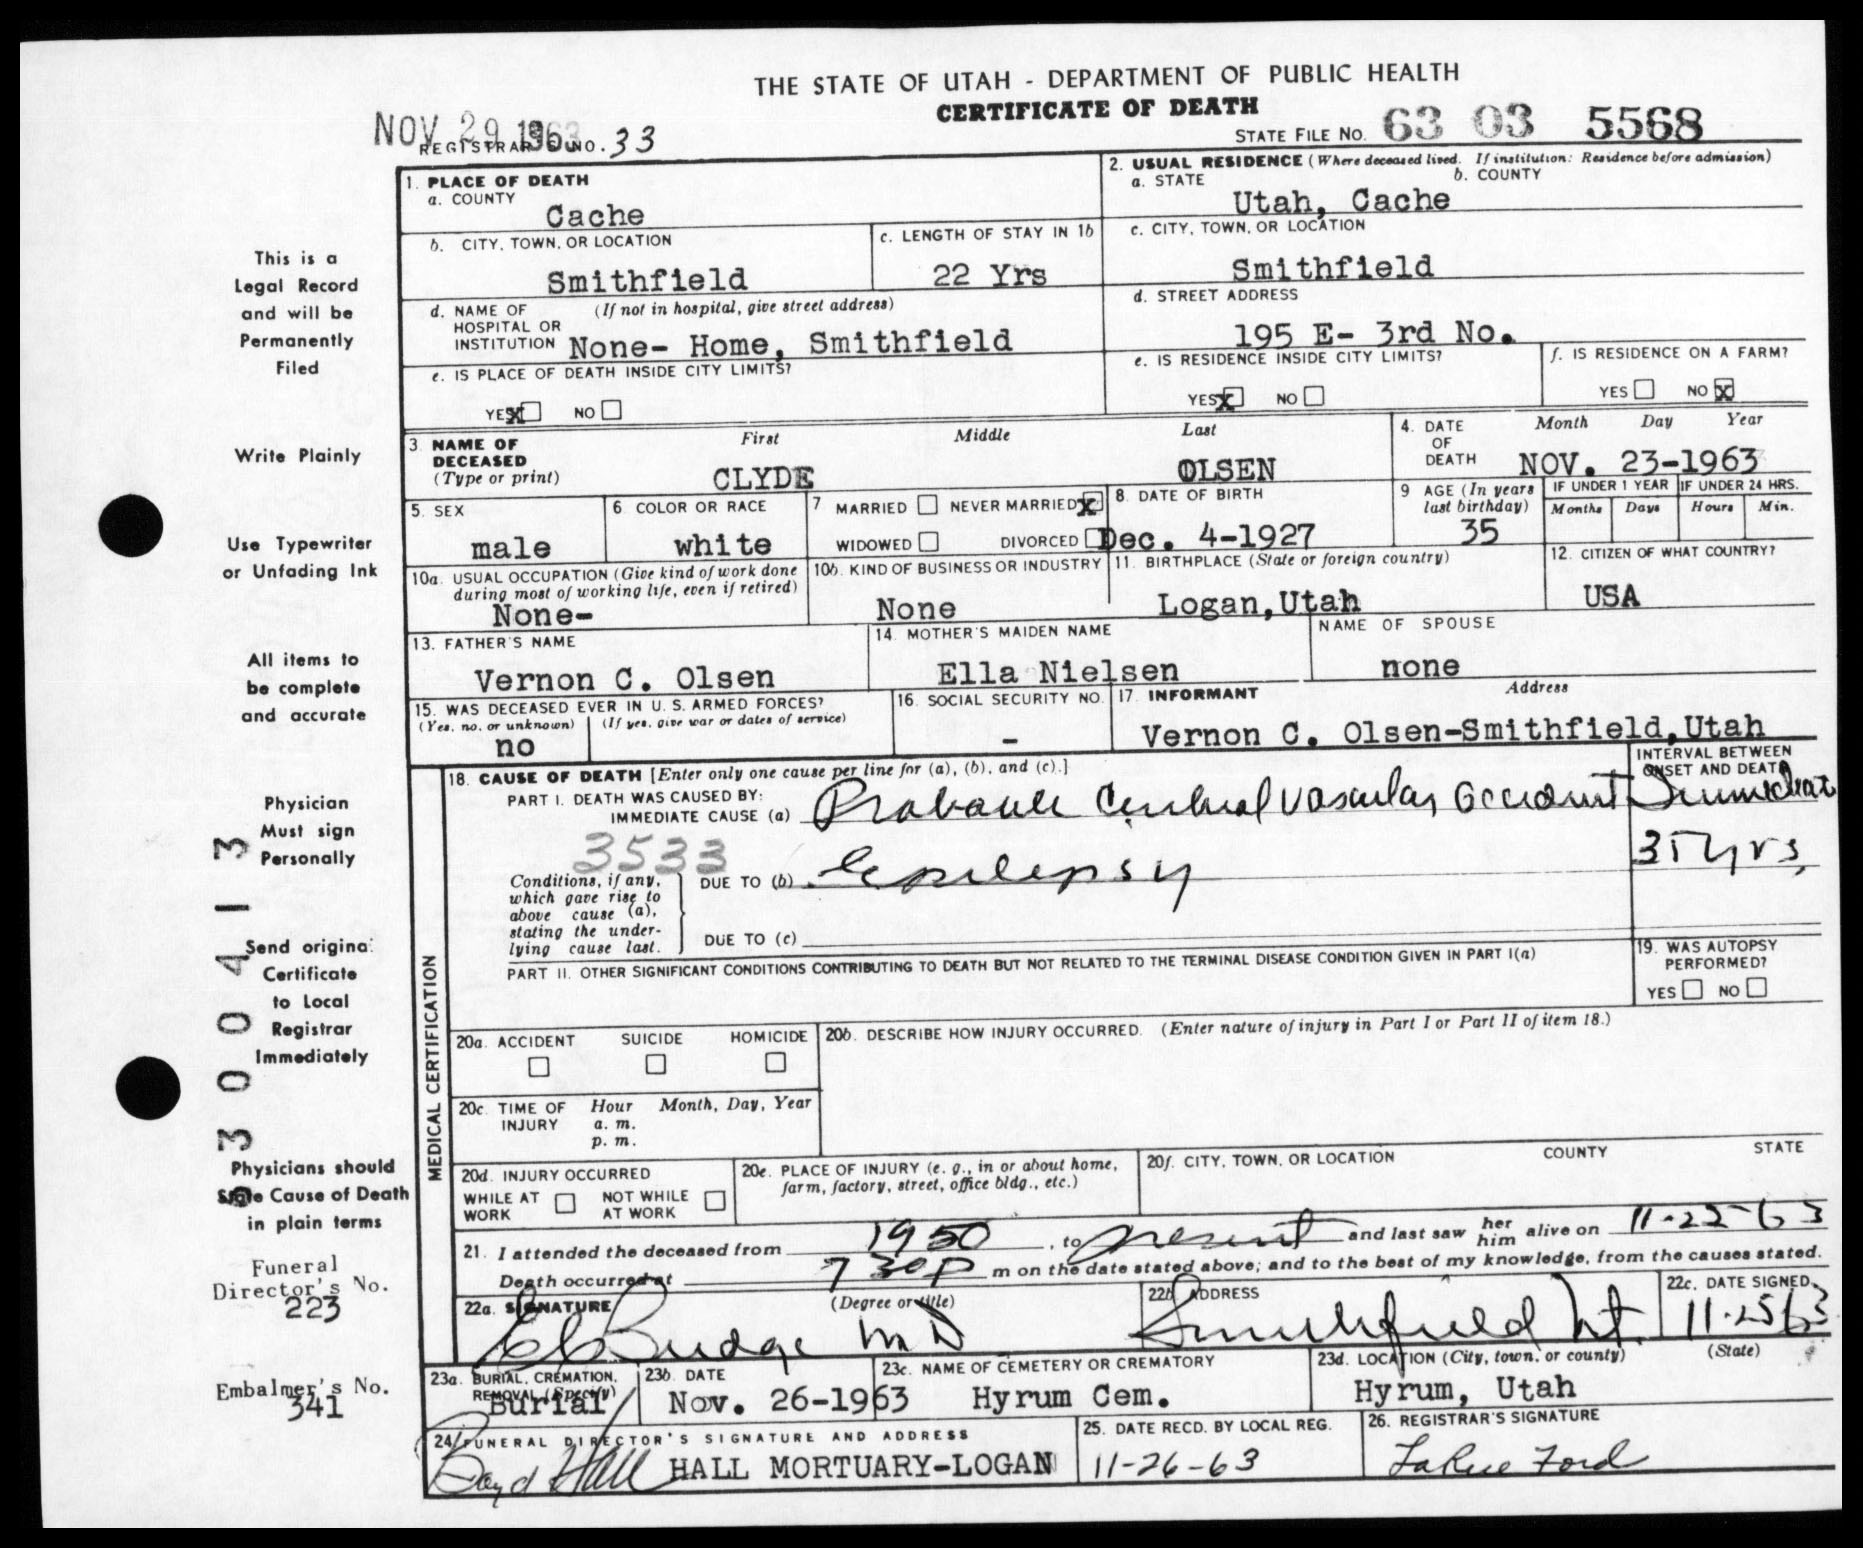 THE STATE OF UTAH - DEPARTMENT OF PUBLIC HEALTH
CERTIFICATE OF DEATH
NOV 29 1963
REGISTRAR'S NO. 33
STATE FILE NO. 63 03 5568
1. PLACE OF DEATH
a. COUNTY
Cache
2. USUAL RESIDENCE (Where deceased lived. If institution: Residence before admission)
a. STATE b. COUNTY
Utah, Cache
b. CITY, TOWN, OR LOCATION
Smithfield
c. LENGTH OF STAY IN 1b
22 Yrs
c. CITY, TOWN, OR LOCATION
Smithfield
d. NAME OF HOSPITAL OR INSTITUTION (If not in hospital, give street address)
None- Home, Smithfield
d. STREET ADDRESS
195 E- 3rd No.
e. IS PLACE OF DEATH INSIDE CITY LIMITS?
YES X NO
e. IS RESIDENCE INSIDE CITY LIMITS?
YES X NO
f. IS RESIDENCE ON A FARM?
YES NO X
3. NAME OF DECEASED (Type or print)
First Middle Last
CLYDE OLSEN
4. DATE OF DEATH Month Day Year
NOV. 23-1963
5. SEX
male
6. COLOR OR RACE
white
7 MARRIED NEVER MARRIED X
WIDOWED DIVORCED
8. DATE OF BIRTH
Dec. 4-1927
9 AGE (In years last birthday)
35
IF UNDER 1 YEAR
Months Days
IF UNDER 24 HRS.
Hours Min.
10a. USUAL OCCUPATION (Give kind of work done during most of working life, even if retired)
None-
10b. KIND OF BUSINESS OR INDUSTRY
None
11. BIRTHPLACE (State or foreign country)
Logan,Utah
12. CITIZEN OF WHAT COUNTRY?
USA
13. FATHER'S NAME
Vernon C. Olsen
14. MOTHER'S MAIDEN NAME
Ella Nielsen
NAME OF SPOUSE
none
15. WAS DECEASED EVER IN U. S. ARMED FORCES?
(Yes, no, or unknown) (If yes, give war or dates of service)
no
16. SOCIAL SECURITY NO.
-
17. INFORMANT Address
Vernon C. Olsen-Smithfield,Utah
MEDICAL CERTIFICATION
18. CAUSE OF DEATH [Enter only one cause per line for (a), (b), and (c).]
INTERVAL BETWEEN ONSET AND DEATH
PART I. DEATH WAS CAUSED BY:
IMMEDIATE CAUSE (a) Probable Cerebral vascular accident Immediate
3533
Conditions, if any, which gave rise to above cause (a), stating the underlying cause last.
DUE TO (b) Epilepsy 35 yrs,
DUE TO (c)
PART II. OTHER SIGNIFICANT CONDITIONS CONTRIBUTING TO DEATH BUT NOT RELATED TO THE TERMINAL DISEASE CONDITION GIVEN IN PART I(a)
19. WAS AUTOPSY PERFORMED?
YES NO
20a. ACCIDENT SUICIDE HOMICIDE
20b. DESCRIBE HOW INJURY OCCURRED. (Enter nature of injury in Part I or Part II of item 18.)
20c. TIME OF INJURY Hour Month, Day, Year
a. m.
p. m.
20d. INJURY OCCURRED
WHILE AT WORK NOT WHILE AT WORK
20e. PLACE OF INJURY (e. g., in or about home, farm, factory, street, office bldg., etc.)
20f. CITY, TOWN, OR LOCATION COUNTY STATE
21. I attended the deceased from 1950, to present and last saw her him alive on 11-22-63
Death occurred at 7 30 P m on the date stated above; and to the best of my knowledge, from the causes stated.
22a. SIGNATURE (Degree or title)
Budge M D
22b ADDRESS
Smithfield Ut.
22c. DATE SIGNED
11-25 63
23a. BURIAL, CREMATION, REMOVAL (Specify)
Burial
23b. DATE
Nov. 26-1963
23c. NAME OF CEMETERY OR CREMATORY
Hyrum Cem.
23d. LOCATION (City, town, or county) (State)
Hyrum, Utah
24 FUNERAL DIRECTOR'S SIGNATURE AND ADDRESS
Boyd Hall HALL MORTUARY-LOGAN
25. DATE RECD. BY LOCAL REG.
11-26-63
26. REGISTRAR'S SIGNATURE
LaRue Ford
This is a
Legal Record
and will be
Permanently
Filed
Write Plainly
Use Typewriter
or Unfading Ink
All items to
be complete
and accurate
Physician
Must sign
Personally
Send original
Certificate
to Local
Registrar
Immediately
Physicians should
State Cause of Death
in plain terms
Funeral
Director's No.
223
Embalmer's No.
341